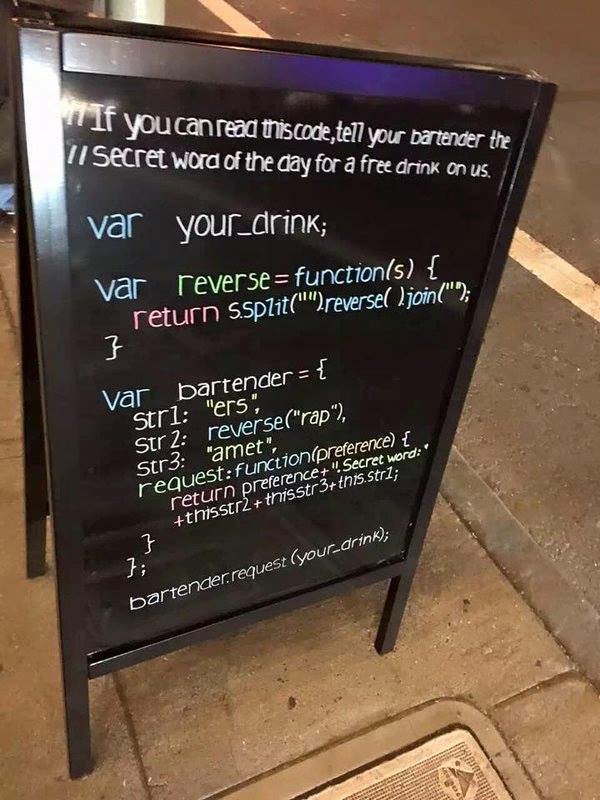 // If you can read this code, tell your bartender the
// Secret word of the day for a free drink on us.
var your_drink;
var reverse = function(s) {
return s.split("").reverse( ).join("");
}
var bartender = {
str1: "ers",
str2: reverse("rap"),
str3: "amet",
request: function(preference) {
return preference+". Secret word: "
+this.str2+this.str3+this.str1;
}
};
bartender.request (your_drink);